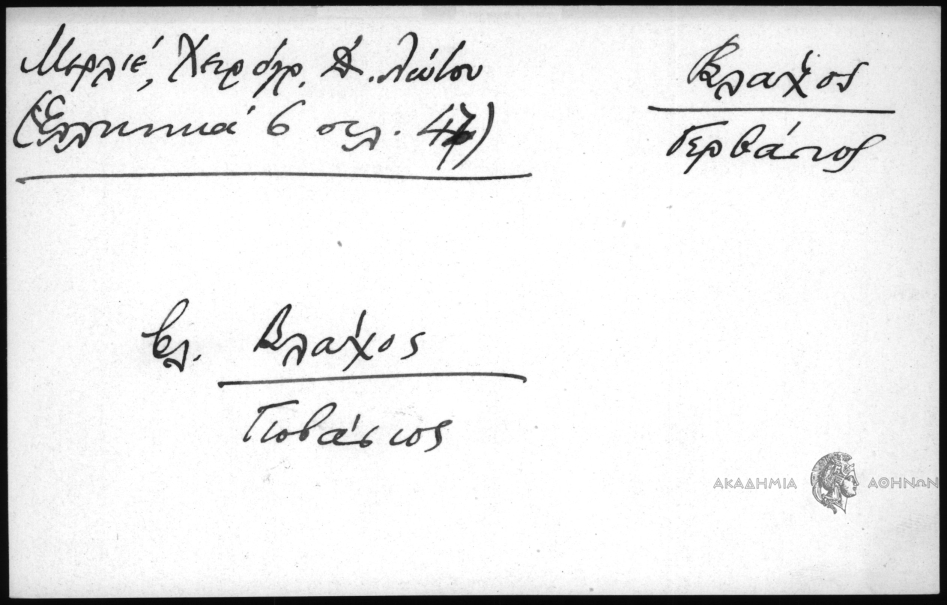 Μερλιέ, Χειρόγρ. Δ. Λώτου
(Ελληνικά 6 σελ. 47)
Βλάχος
Γερβάσιος
βλ. Βλάχος
Γιοβάσιος
ΑΚΑΔΗΜΙΑ ΑΘΗΝΩΝ